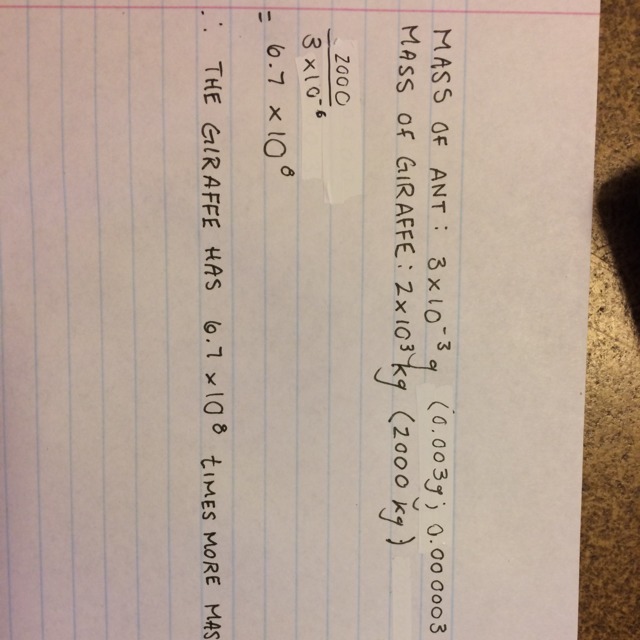 MASS OF ANT: 3×10⁻³g (0.003g; 0.000003
MASS OF GIRAFFE: 2×10³kg (2000 kg)
2000
3×10⁻⁶
= 6.7 ×10⁸
∴ THE GIRAFFE HAS 6.7×10⁸ tIMES MORE MAS